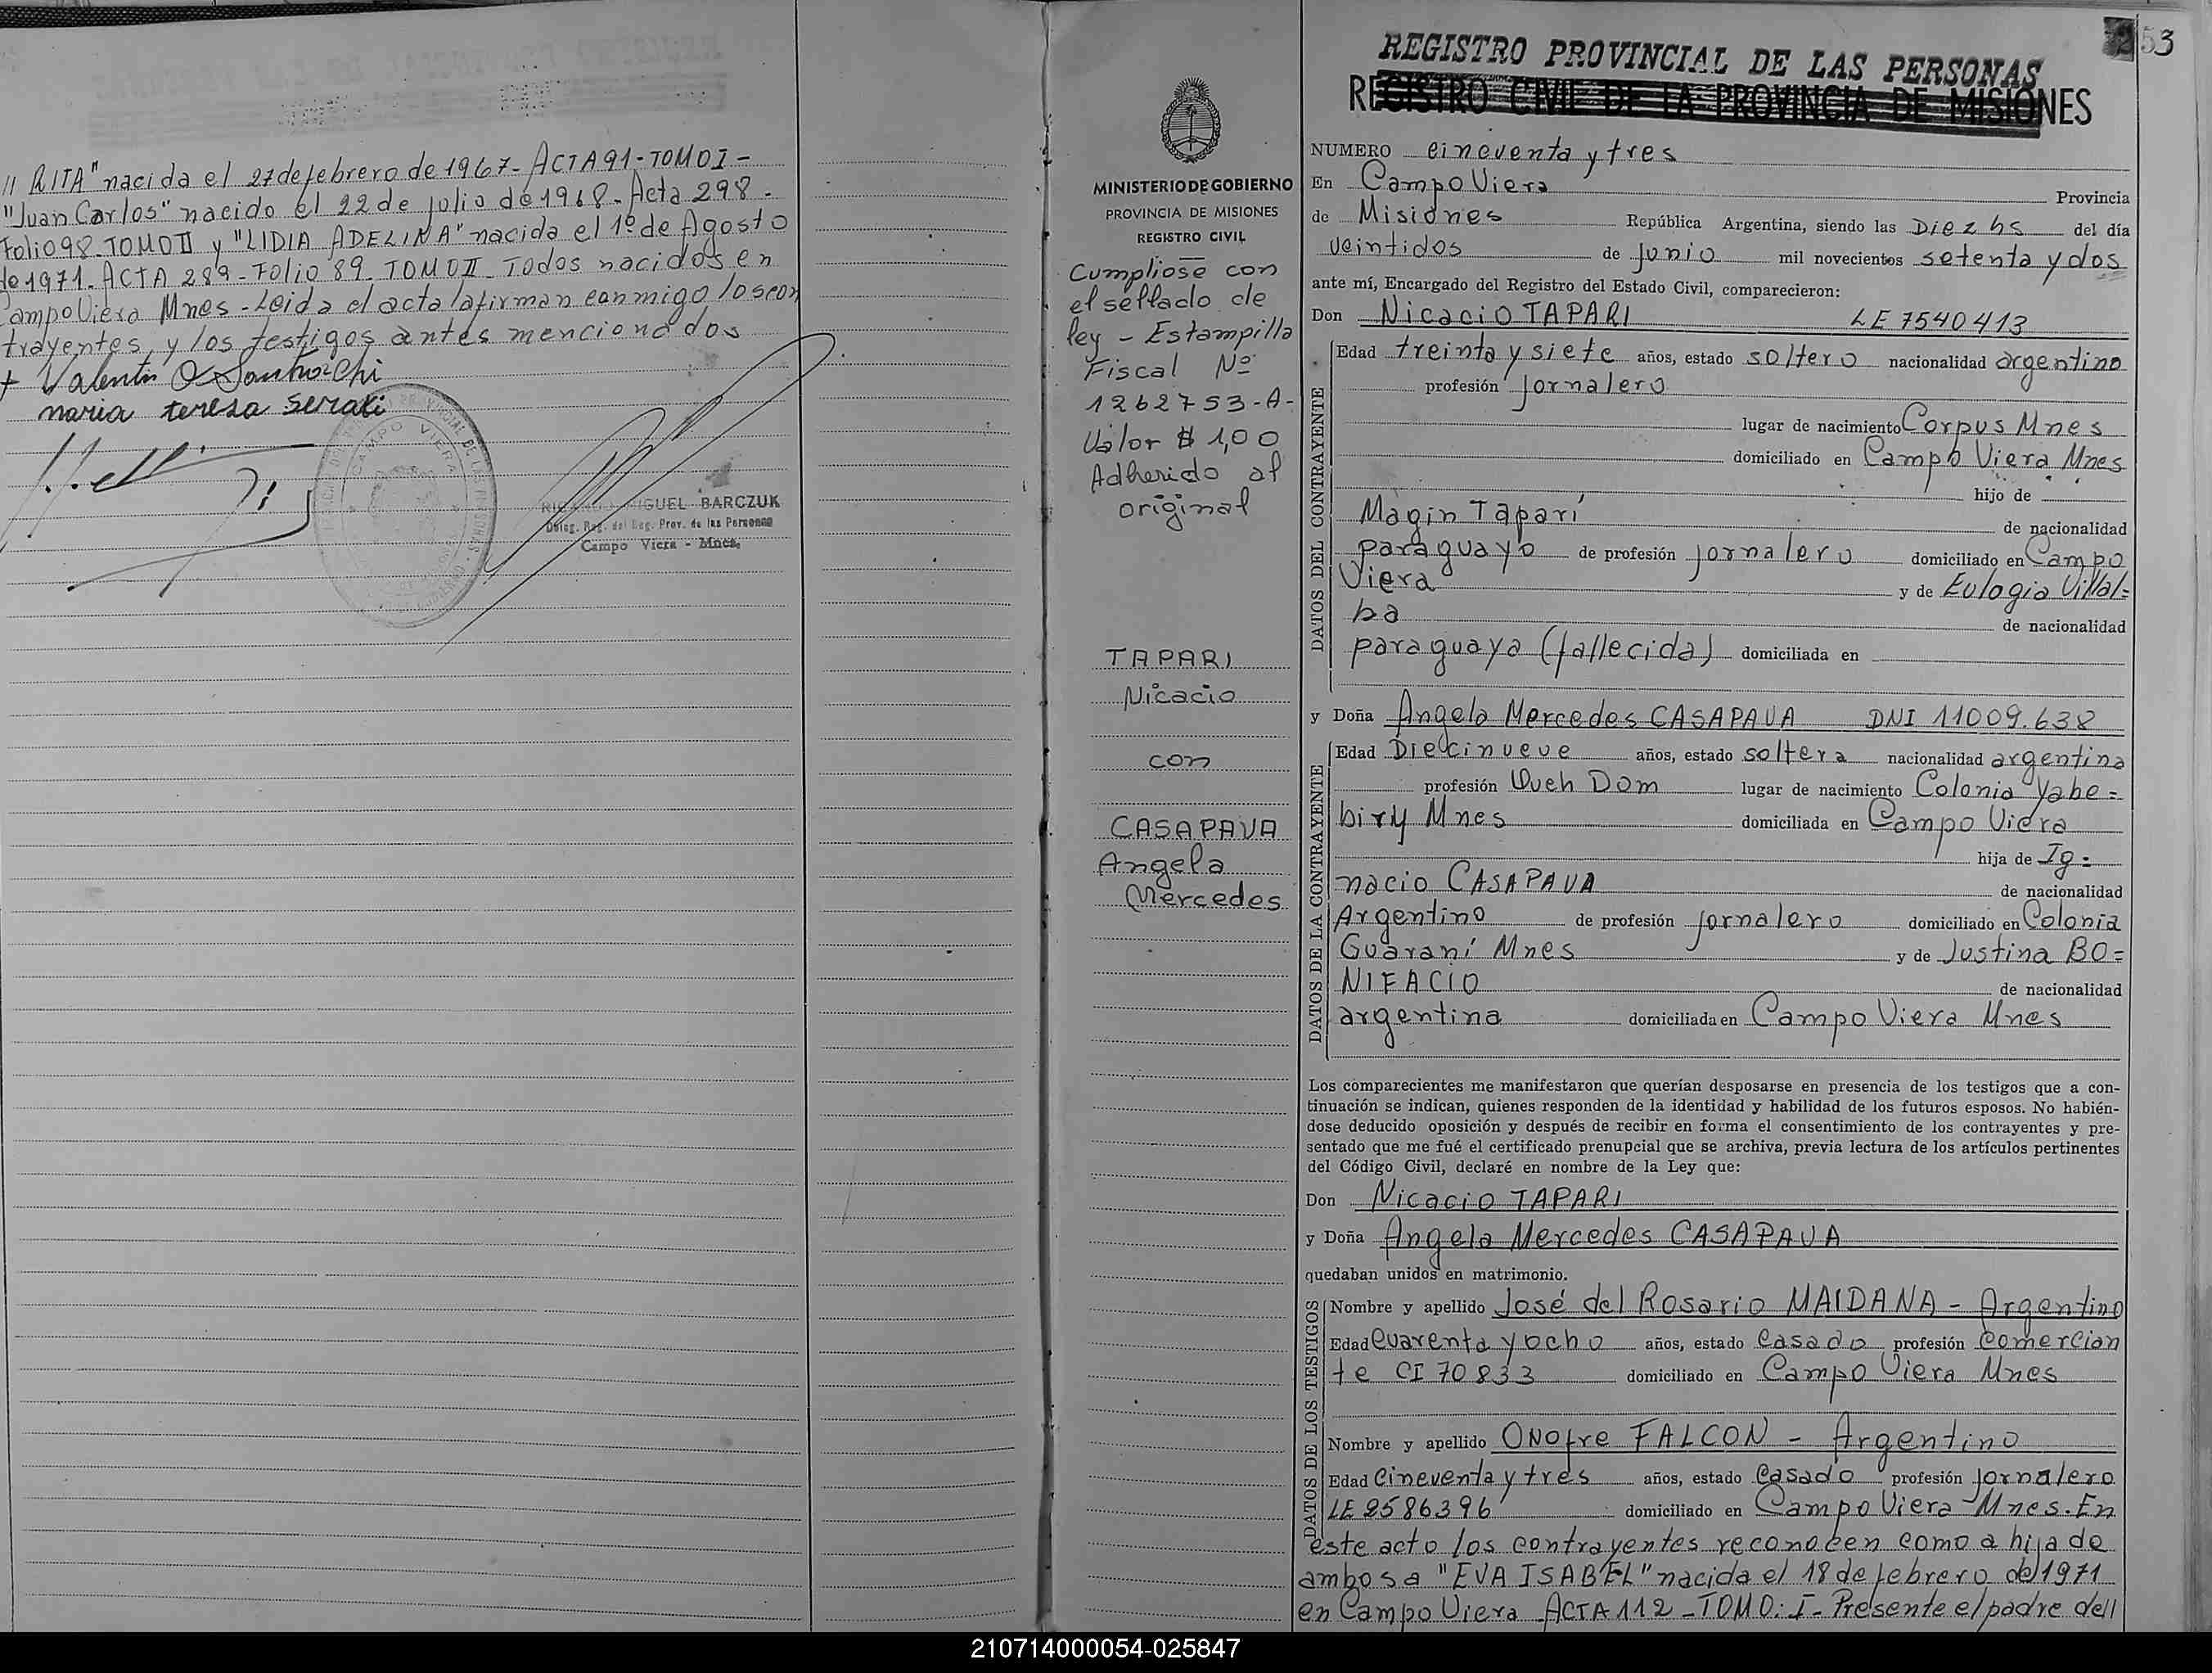 // RITA" nacida el 27 de febrero de 1967- ACTA 91-TOMO I-
"Juan Carlos" nacido el 22 de julio de 1968- Acta 298-
Folio 98 TOMO II y "LIDIA ADELINA" nacida el 1º de Agosto
de 1971- ACTA 289- Folio 89- TOMO II- Todos nacidos en
Campo Viera Mnes - Leida el acta la firman conmigo los con
trayentes y los testigos antes mencionados
maria teresa serati
CAMPO VIERA
MIGUEL BARCZUK
Deleg. Reg. del Reg. Prov. de las Personas
Campo Viera - Mnes.
MINISTERIO DE GOBIERNO
PROVINCIA DE MISIONES
REGISTRO CIVIL
Cumpliose con
el sellado de
ley - Estampilla
Fiscal Nº
1262753-A-
Valor $ 1,00
Adherido al
original
TAPARI
Nicacio
con
CASAPAVA
Angela
Mercedes
53
REGISTRO PROVINCIAL DE LAS PERSONAS
REGISTRO CIVIL DE LA PROVINCIA DE MISIONES
NUMERO cincuenta y tres
En Campo Viera Provincia
de Misiones República Argentina, siendo las Diez hs del día
veintidos de junio mil novecientos setenta y dos
ante mí, Encargado del Registro del Estado Civil, comparecieron:
Don Nicacio TAPARI LE 7540413
DATOS DEL CONTRAYENTE
Edad treinta y siete años, estado soltero nacionalidad argentino
profesión jornalero
lugar de nacimiento Corpus Mnes
domiciliado en Campo Viera Mnes
hijo de
Magin Taparí de nacionalidad
paraguayo de profesión jornalero domiciliado en Campo
Viera y de Eulogia Villal=
ba de nacionalidad
paraguaya (fallecida) domiciliada en
y Doña Angela Mercedes CASAPAVA DNI 11009.638
DATOS DE LA CONTRAYENTE
Edad Diecinueve años, estado soltera nacionalidad argentina
profesión Queh Dom lugar de nacimiento Colonia Yabe=
biry Mnes domiciliada en Campo Viera
hija de Ig=
nacio CASAPAVA de nacionalidad
Argentino de profesión jornalero domiciliado en Colonia
Guaraní Mnes y de Justina BO=
NIFACIO de nacionalidad
argentina domiciliada en Campo Viera Mnes
Los comparecientes me manifestaron que querían desposarse en presencia de los testigos que a con-
tinuación se indican, quienes responden de la identidad y habilidad de los futuros esposos. No habién-
dose deducido oposición y después de recibir en forma el consentimiento de los contrayentes y pre-
sentado que me fué el certificado prenupcial que se archiva, previa lectura de los artículos pertinentes
del Código Civil, declaré en nombre de la Ley que:
Don Nicacio TAPARI
y Doña Angela Mercedes CASAPAVA
quedaban unidos en matrimonio.
DATOS DE LOS TESTIGOS
Nombre y apellido José del Rosario MAIDANA - Argentino
Edad cuarenta y ocho años, estado casado profesión comercian
te CI 70833 domiciliado en Campo Viera Mnes
Nombre y apellido ONofre FALCON - Argentino
Edad cincuenta y tres años, estado casado profesión jornalero
LE 2586396 domiciliado en Campo Viera - Mnes. En
este acto los contrayentes reconocen como a hija de
ambos a "EVA ISABEL" nacida el 18 de febrero de 1971
en Campo Viera ACTA 112 - TOMO: I - Presente el padre de//
210714000054-025847